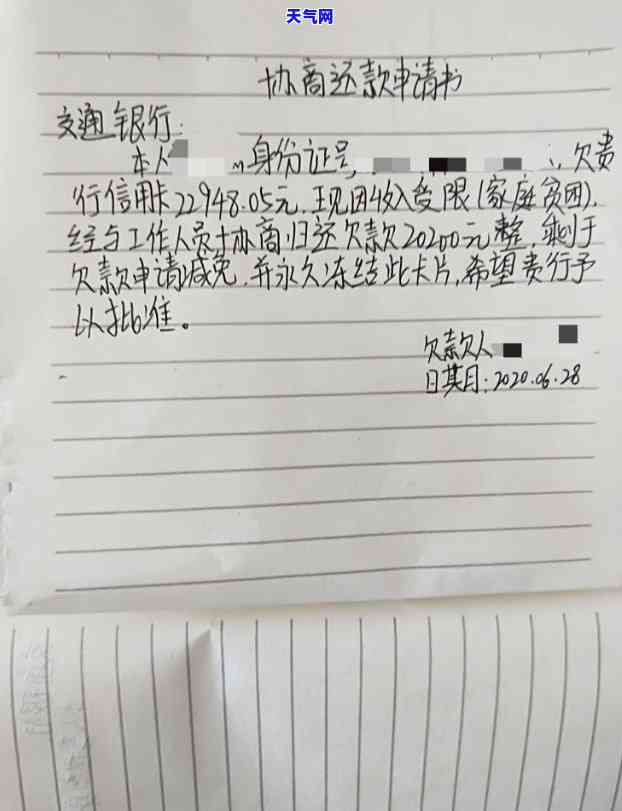 天气网
协商还款申请书
交通银行:
本人 身份证号, 欠贵
行信用卡22948.05元.现因收入受限(家庭贫困).
经与工作人员协商归还欠款20200元整,剩于
欠款申请减免.并永久冻结此卡片,希望贵行予
以批准。
欠款人
日期:2020.06.28